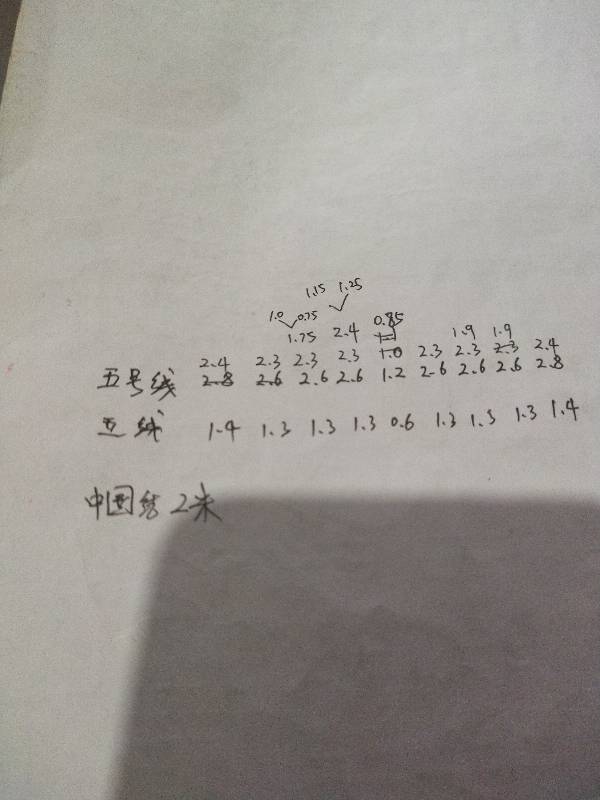 1.15 1.25
1.0 0.75 0.85
1.75 2.4 1.9 1.9
2.4 2.3 2.3 2.3 1.0 2.3 2.3 2.3 2.4
五号线 2.8 2.6 2.6 2.6 1.2 2.6 2.6 2.6 2.8
玉线 1.4 1.3 1.3 1.3 0.6 1.3 1.3 1.3 1.4
中国结 2米